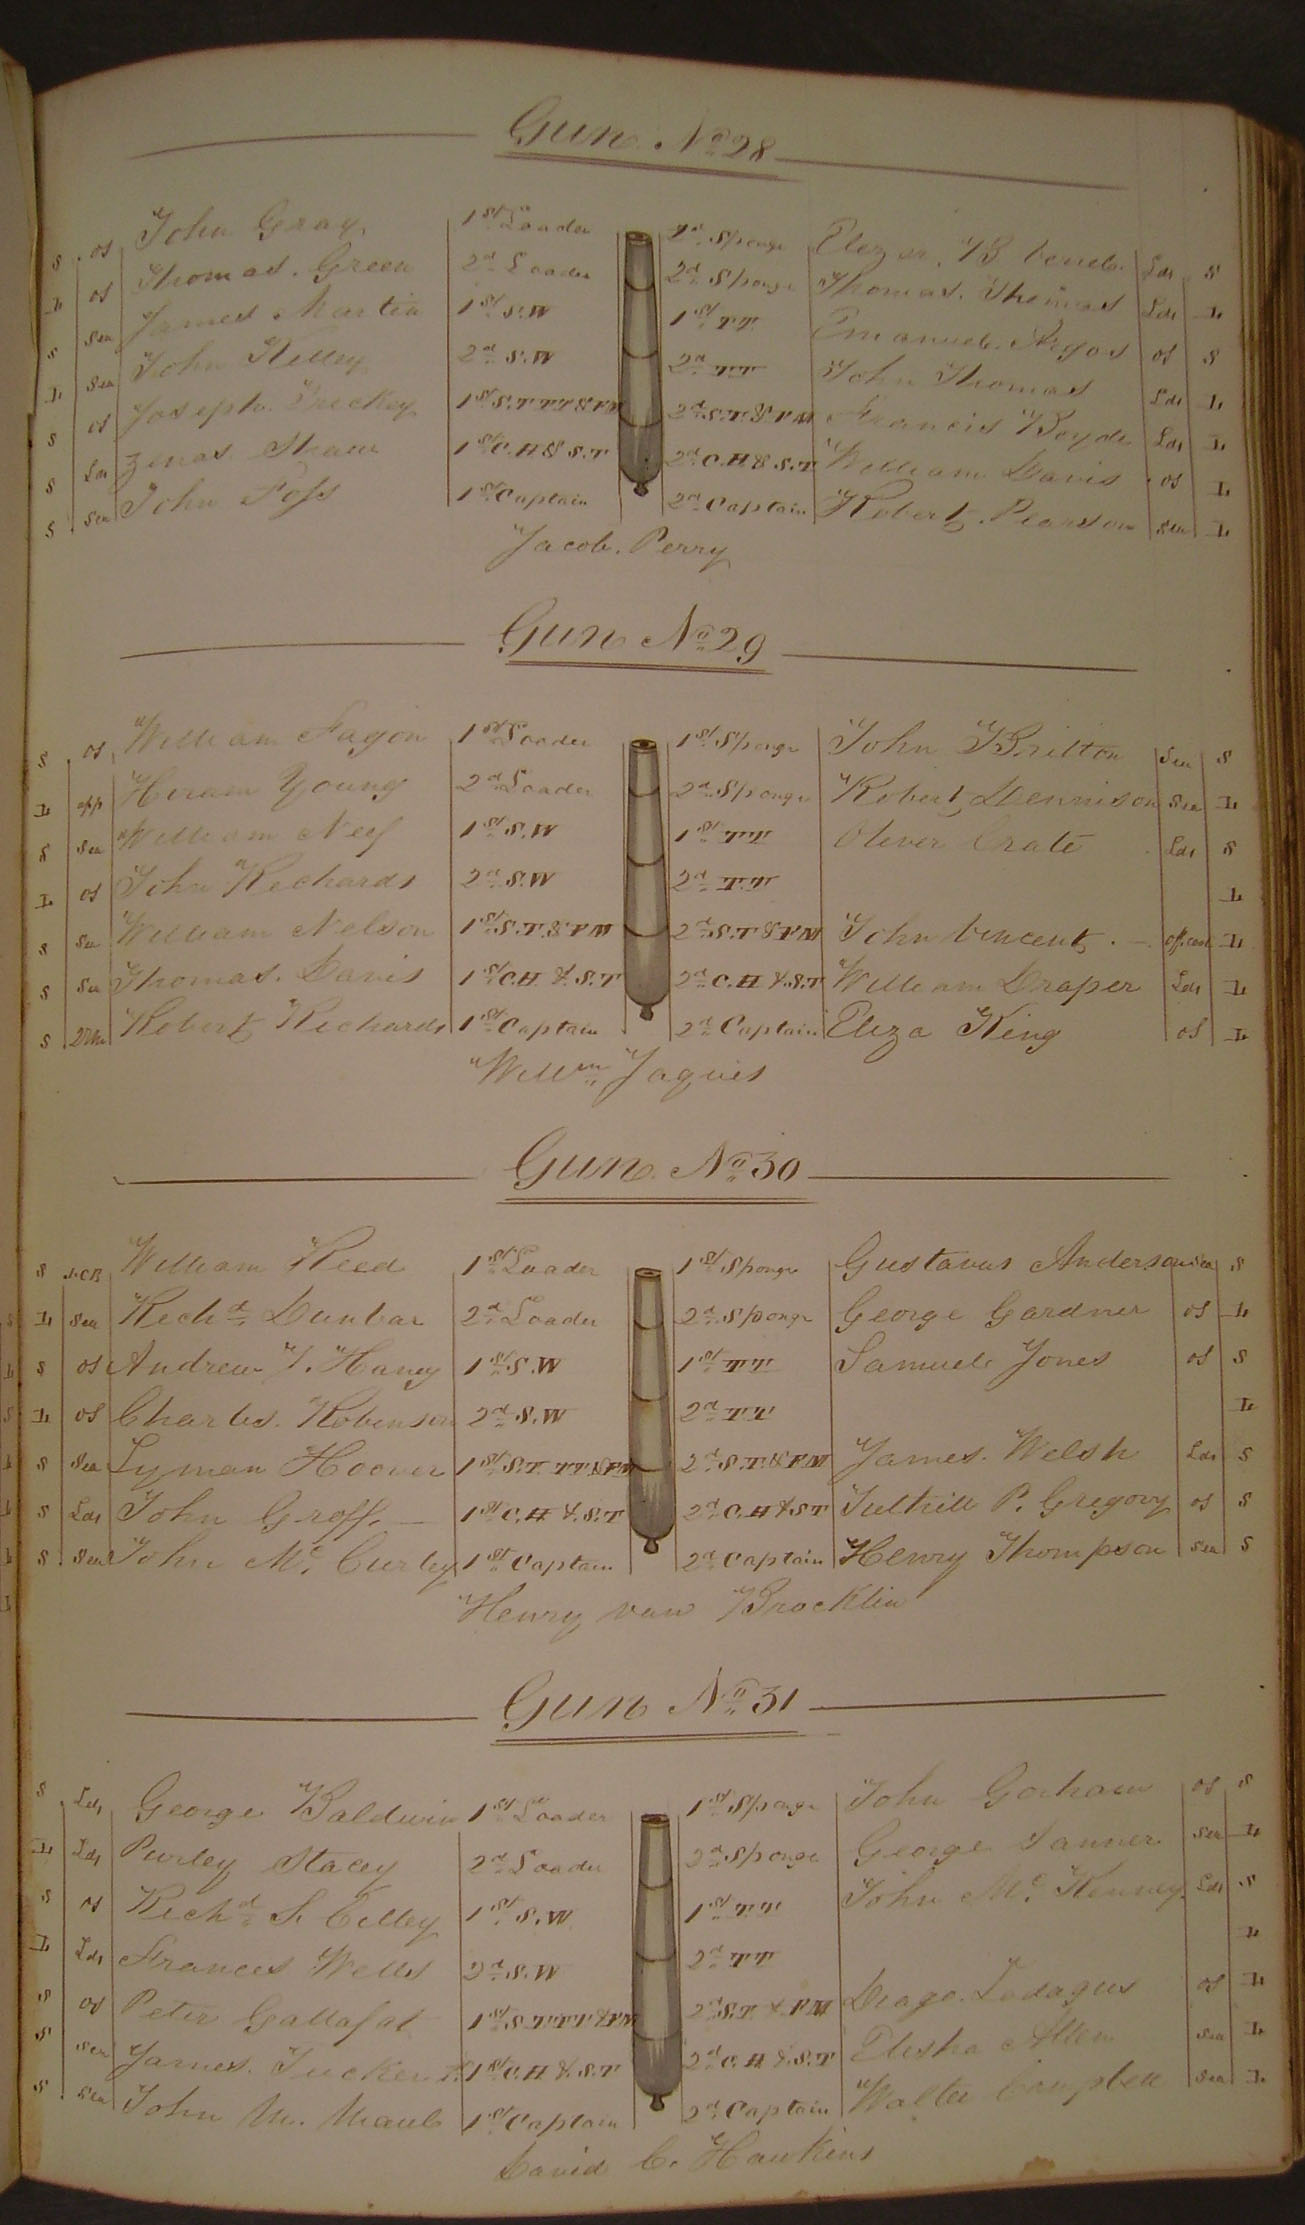 Gun. No 28
S OS John Gray 1st Loader 1st Sponge Lds S
L OS Thomas. Green 2d Loader 2d Sponge Thomas. Thomas Lds L
S Sea James Martin 1st S.W 1st T.T Emanuel. OS S
L Sea John Kelley 2d S.W 2d T.T John Thomas Lds L
S OS Joseph. 1st S.T T.T & F.M 2d S.T. & F.M Francis Boyde Lds L
S Lds Zenas Shaw 1st C.H & S.T 2d C.H & S.T William Davis OS L
S Sea John Foss 1st Captain 2d Captain Robert. Pearson Sea L
Jacob. Perry
Gun No 29
S OS William Fagon 1st Loader 1st Sponge John Britton Sea S
L app Hiram Young 2d Loader 2d Sponge Robert Dennison Sea L
S Sea William Neef 1st S.W 1st T.T Oliver Crate Lds S
L OS John Richards 2d S.W 2d T.T L
S Sea William Nelson 1st S.T. & F.M 2d S.T & F.M John Vincent. L
S Sea Thomas. Davis 1st C.H & S.T 2d C.H & S.T William Draper Lds L
S Robert Richards 1st Captain 2d Captain Eliza King OS L
Willm Jaques
Gun. No 30
S William Reed 1st Loader 1st Sponge Gustavus Anderson Sea S
L Sea Richd Dunbar 2d Loader 2d Sponge George Gardner OS L
S OS Andrew J. Haney 1st S.W 1st T.T Samuel Jones OS S
L OS Charles. Robinson 2d S.W 2d T.T L
S Sea Lyman Hoover 1st S.T. T.T. & F.M 2d S.T. & F.M James. Welsh Lds S
S Lds John Groff. 1st C.H & S.T 2d C.H & S.T Tuthill P. Gregory OS S
S Sea John Mc Curley 1st Captain 2d Captain Henry Thompson Sea S
Henry van Brocklin
Gun No 31
S Lds George Baldwin 1st Loader 1st Sponge John Gorham OS S
L Lds Purley Stacey 2d Loader 2d Sponge George Tanner Sea L
S OS Richd S. Cilley 1st S.W 1st T.T John Mc Kenney Lds S
L Lds Frances Wells 2d S.W 2d T.T L
S OS Peter Gallafat 1st S.T T.T & F.M 2d S.T & F.M OS L
S Sea James. Tucker 1st C.H & S.T 2d C.H & S.T Elisha Allen Sea L
S Sea John M. 1st Captain 2d Captain Walter Campbell Sea L
David C. Hawkins